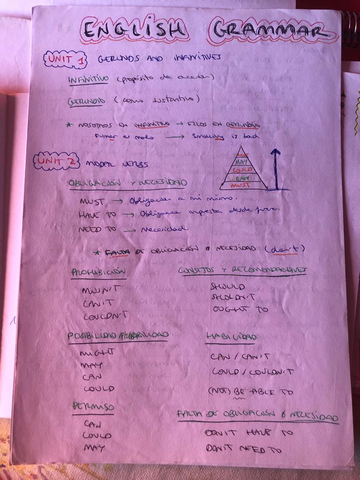 ENGLISH GRAMMAR
UNIT 1 GERUNDS AND INFINITIVES
INFINITIVO (propósito de acción)
GERUNDIO (como sustantivo)
* NOSOTROS EN INFINITIVO → ELLOS EN GERUNDIO
Fumar es malo → Smoking is bad
UNIT 2 MODAL VERBS
MAY
COULD
CAN
MUST
OBLIGACIÓN Y NECESIDAD
MUST → Obligarse a mi mismo.
HAVE TO → Obligación impuesta desde fuera.
NEED TO → Necesidad.
* FALTA DE OBLIGACIÓN O NECESIDAD (don't)
PROHIBICIÓN
MUSN'T
CAN'T
COULDN'T
CONSEJOS Y RECOMENDACIONES
SHOULD
SHOLDN'T
OUGHT TO
POSIBILIDAD /PROBABILIDAD
MIGHT
MAY
CAN
COULD
HABILIDAD
CAN / CAN'T
COULD / COULDN'T
(NOT) BE ABLE TO
PERMISO
CAN
COULD
MAY
FALTA DE OBLIGACIÓN O NECESIDAD
DON'T HAVE TO
DON'T NEED TO